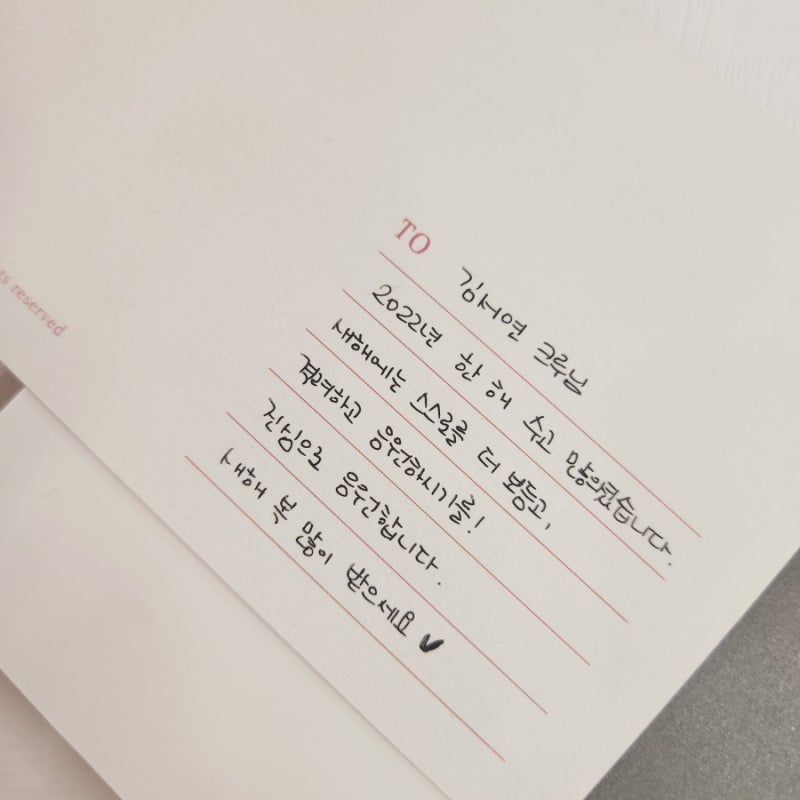 TO 김서연 크루님
2022년 한 해 수고 많으셨습니다.
새해에는 스스로를 더 보듬고,
격려하고 응원하시기를!
진심으로 응원합니다.
새해 복 많이 받으세요
reserved